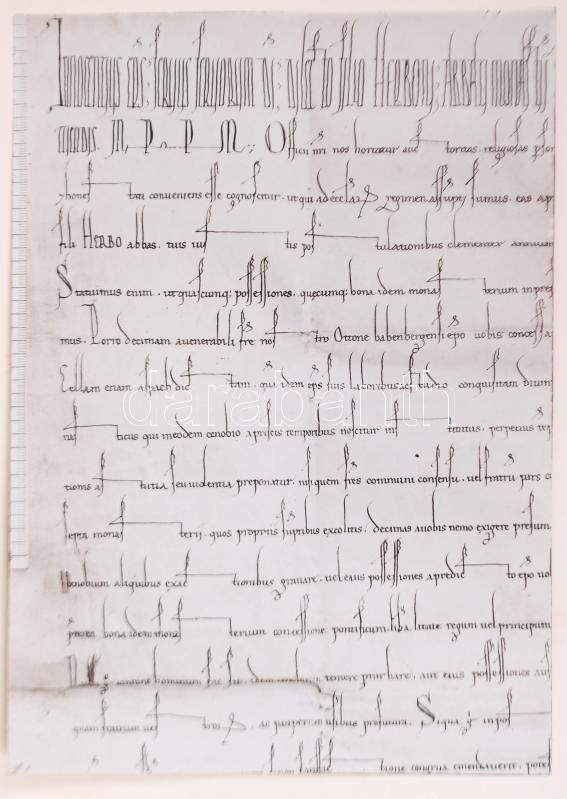 Innocentius eps; seruus seruorum di; dilecto filio HERBONI; Abbati monast
Officii nri nos hortatur auctoritas. religiosas
hones tati conueniens esse cognoscitur. ut qui ad ecclar regimen assupti sumus. eas
fili HERBO abbas. tuis ius tis pos tulationibus clementer annuim
Statuimus enim. ut quascumq; possessiones. quecumq; bona idem monas terium in pres
mus. Porro decimam a uenerabili fre nos tro Ottone babenbergensi epo uobis concessa
Cellam etiam aspach dic tam. qui idem eps suis laboribus et studio conquisitam
nas ticus qui in eodem cenobio a priscis temporibus noscitur ins titutus. perpetuis
tionis as tutia seu uiolentia preponatur. nisi quem fres communi consensu. uel fratru pars
septa monas terii. quos propriis suptibus excolitis. decimas a uobis nemo exigere presum
cenobium aliquibus exac tionibus grauare. uel eius possessiones a predic to epo uol
preterea bona idem monas terium concessione pontificum. liberalitate regum uel principum
omnino hominum fas sit. idem temere pturbare. aut eius possessiones auf
quam fratrum ues tror. ac pauperum usibus profutura. Siqua g in pos
tione congrua emendauerit. potes
darabanth